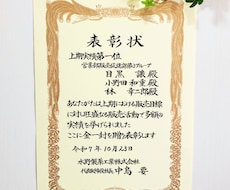 表彰状
上期実績第一位
営業部販売促進部第3グループ
目黒 譲殿
小野田和重殿
林 幸二郎殿
あなたがたは上期における販売目標
に対し旺盛なる販売活動で多額の
実績を挙げられました
ここに金一封を贈り表彰します
令和7年10月23日
水野製薬工業株式会社
代表取締役社長 中島 要